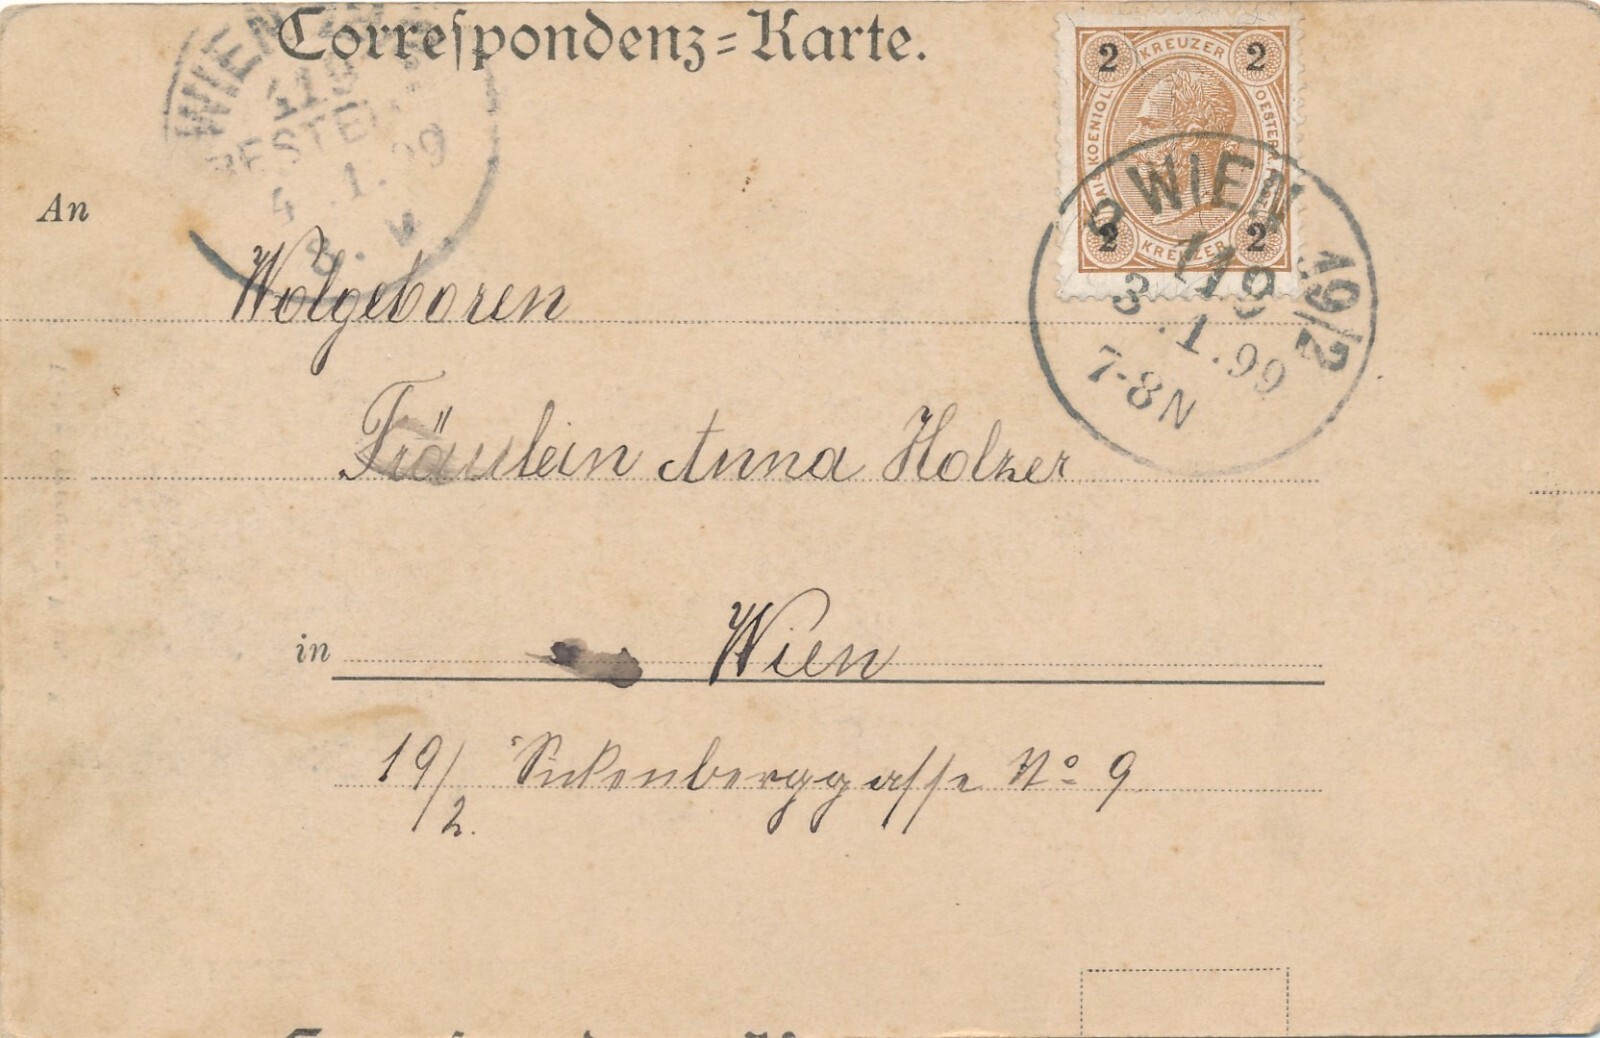 Correspondenz=Karte.
WIEN
119
BESTELLT
4.1.99
8.V
2 KREUZER 2
KAIS. KOENIGL. OESTERR. POST
2 KREUZER 2
WIEN 19/2
119
3.1.99
7-8N
An
Wolgeboren
Fräulein Anna Holzer
in Wien
19/2. Sickenberggasse No 9